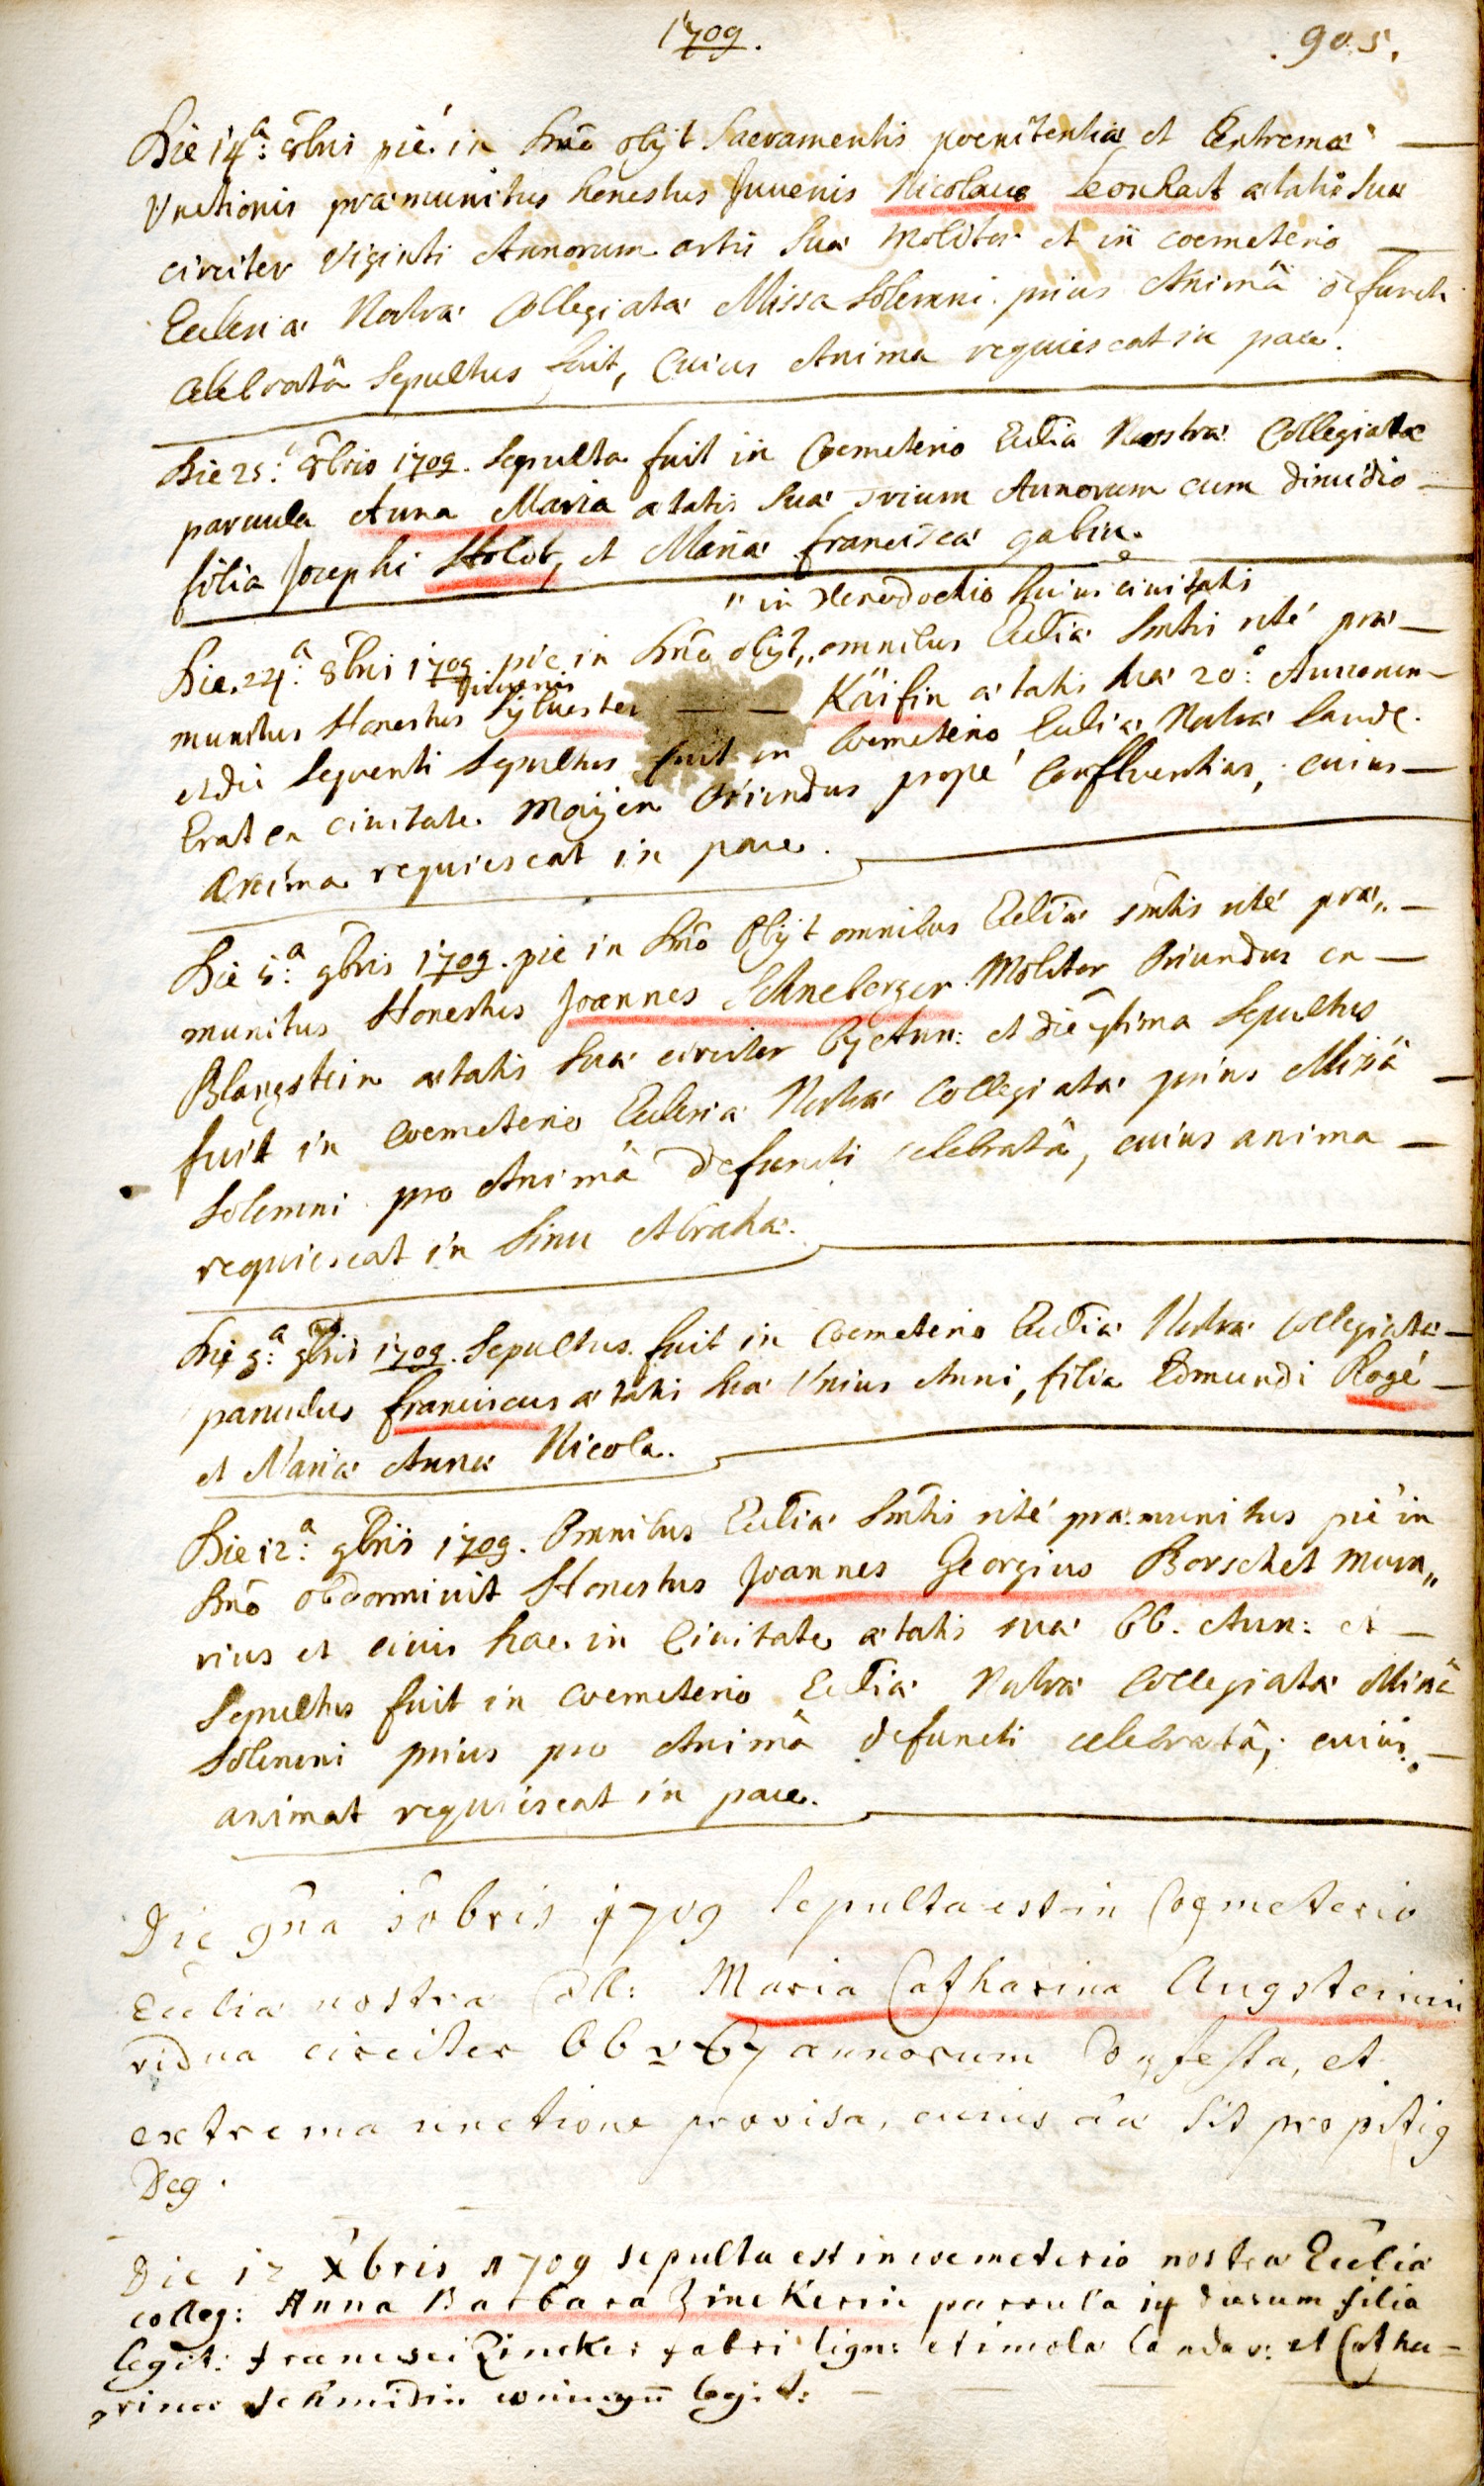 1709. .905.
Die 14a: 8bris pié in Dnō obijt Sacramentis poenitentiæ et Extremæ
Vnctionis præmunitus honestus Juuenis Nicolaus Leonhart ætatis suæ
circiter viginti Annorum artis suæ Molitor et in coemeterio
Ecclesiæ Nostræ Collegiatæ Missa Solemni prius Animâ defuncti
celebratâ Sepultus fuit, Cuius Anima requiescat in pace.
Die 25: 8bris 1709. Sepulta fuit in Coemeterio Eccliæ Nostræ Collegiatæ
paruula Anna Maria ætatis suæ trium Annorum cum dimidio
filia Josephi Holob, et Mariæ Franciscæ
" in Xenodochio huius ciuitatis
Die 24a: 8bris 1709. pie in Dnō obijt,, omnibus Eccliæ Smtis rité præ-
Juuenis
munitus Honestus Syluester — — Käifin ætatis suæ 20: Annorum
et die sequenti Sepultus fuit in Coemeterio Eccliæ Nostræ Landæ.
Erat ex ciuitate Maÿen Oriundus propé Confluentias, cuius
Anima requiescat in pace.
Die 5a: 9bris 1709. pie in Dnō Obijt omnibus Eccliæ smtis rité præ,,
munitus Honestus Joannes Schneberger Molitor Oriundus ex
Blangstein ætatis suæ circiter 67 Ann: et die 7tima Sepultus
fuit in Coemeterio Ecclesiæ Nostræ Collegiatæ prius Missâ
Solemni pro Animâ defuncti celebratâ, cuius anima
requiescat in Sinu Abrahæ.
Die 8a: 9bris 1709. Sepultus fuit in Coemeterio Eccliæ Nostræ Collegiatæ
paruulus Franciscus ætatis suæ Vnius Anni, filia Edmundi Rogé
et Mariæ Annæ Nicola.
Die 12a: 9bris 1709. Omnibus Eccliæ Smtis rité præmunitus pié in
Dnō obdormiuit Honestus Joannes Georgius Borschet mura,,
rius et ciuis hac in Ciuitate ætatis suæ 66. Ann: et
Sepultus fuit in Coemeterio Eccliæ Nostræ Collegiatæ Missâ
Solemni prius pro Animâ defuncti celebratâ, cuius
animat requiescat in pace.
Die 9na 10bris 1709 sepulta est in Coemeterio
Eccliæ nostræ Coll: Maria Catharina Augsteinin
vidua circiter 66 v 67 annorum Confessa, et
extrema unctione provisa, cuius aæ sit propitig
Deg.
Die 12 Xbris 1709 sepulta est in coemeterio nostræ Eccliæ
colleg: Anna Barbara Zinckerin parvula 14 dierum filia
legit: Francisci Zincker fabri lign: et incolæ Landav: et Catha-
rinæ Schmidin coniugū legit: